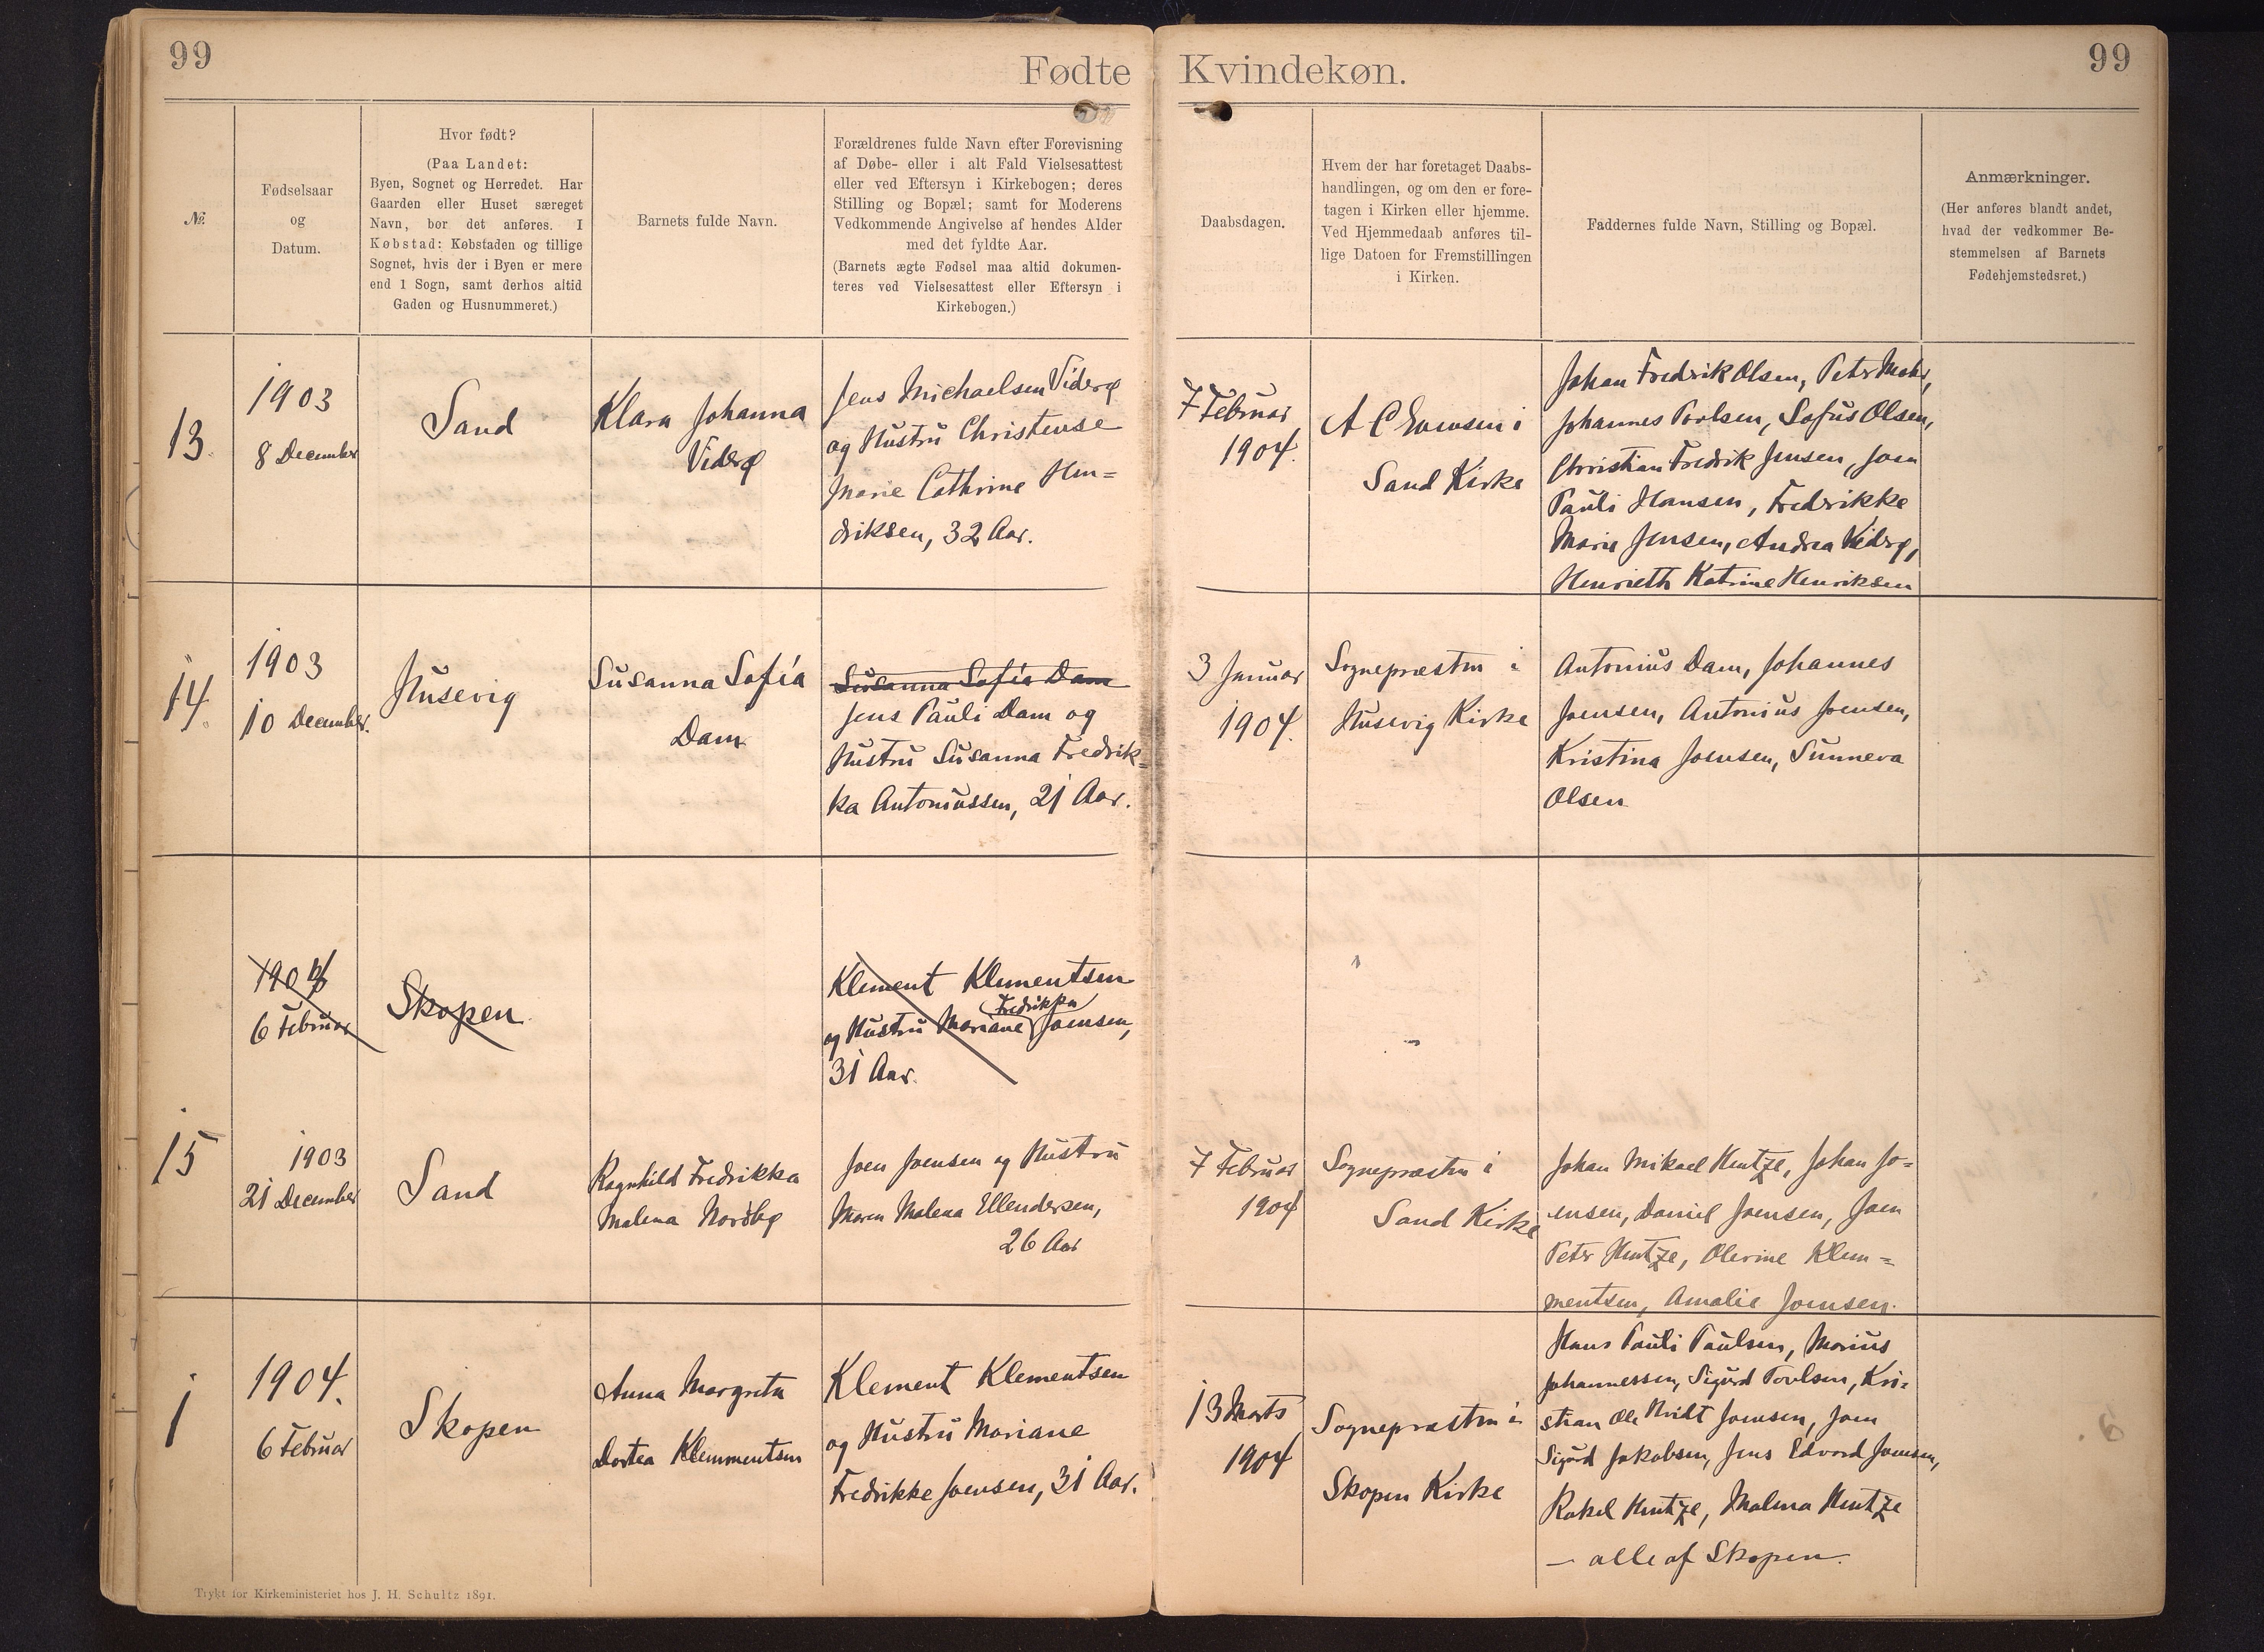 99
Fødte
Kvindekøn.
99
№
Fødselsaar
og
Datum.
Hvor født?
(Paa Landet:
Byen, Sognet og Herredet. Har
Gaarden eller Huset særeget
Navn, bør det anføres. I
Købstad: Købstaden og tillige
Sognet, hvis der i Byen er mere
end 1 Sogn, samt derhos altid
Gaden og Husnummeret.)
Barnets fulde Navn.
Forældrenes fulde Navn efter Forevisning
af Døbe- eller i alt Fald Vielsesattest
eller ved Eftersyn i Kirkebogen; deres
Stilling og Bopæl; samt for Moderens
Vedkommende Angivelse af hendes Alder
med det fyldte Aar.
(Barnets ægte Fødsel maa altid dokumen-
teres ved Vielsesattest eller Eftersyn i
Kirkebogen.)
Daabsdagen.
Hvem der har foretaget Daabs-
handlingen, og om den er fore-
tagen i Kirken eller hjemme.
Ved Hjemmedaab anføres til-
lige Datoen for Fremstillingen
i Kirken.
Faddernes fulde Navn, Stilling og Bopæl.
Anmærkninger.
(Her anføres blandt andet,
hvad der vedkommer Be-
stemmelsen af Barnets
Fødehjemstedsret.)
13.
1903
8 December
Sand
Klara Johanna
Viderø
Jens Michaelsen Viderø
og Hustru Christense
Marie Cathrine Hen=
driksen, 32 Aar.
7 Februar
1904.
A C Evensen i
Sand Kirke
Johan Fredrik Olsen, Peter Mohr,
Johannes Poulsen, Sofus Olsen,
Christian Fredrik Jensen, Joen
Pauli Hansen, Fredrikke
Marie Jensen, Andrea Viderø,
Henrieth Katrine Henriksen
14.
1903
10 December.
Husevig
Susanna Sofia
Dam
Susanna Sofia Dam
Jens Pauli Dam og
Hustru Susanna Fredrik=
ka Antoniussen, 21 Aar.
3 Januar
1904.
Sognepræsten i
Husevig Kirke
Antonius Dam, Johannes
Joensen, Antonius Joensen,
Kristina Joensen, Sunneva
Olsen
6 Februar
Skopen
Klement Klementsen
Fredrikka
og Hustru Mariane Joensen,
31 Aar.
15
1903
21 December
Sand
Ragnhild Fredrikka
Malena Norðbø
Joen Joensen og Hustru
Maren Malena Ellendersen,
26 Aar
7 Februar
1904
Sognepræsten i
Sand Kirke
Johan Mikael Hentze, Johan Jo=
ensen, Daniel Joensen, Joen
Peter Hentze, Olevine Klem=
mentsen, Amalie Joensen.
1
1904.
6 Februar
Skopen
Anna Margreta
Dortea Klemmentsen
Klement Klementsen
og Hustru Mariane
Fredrikke Joensen, 31 Aar.
13 Marts
1904
Sognepræsten i
Skopen Kirke
Hans Pauli Paulsen, Marius
Johannessen, Sigurd Poulsen, Kri=
stian Ole Hvidt Joensen, Joen
Sigurd Jakobsen, Jens Edvard Joensen,
Rakel Hentze, Malena Hentze
— alle af Skopen.
Trykt for Kirkeministeriet hos J. H. Schultz 1891.